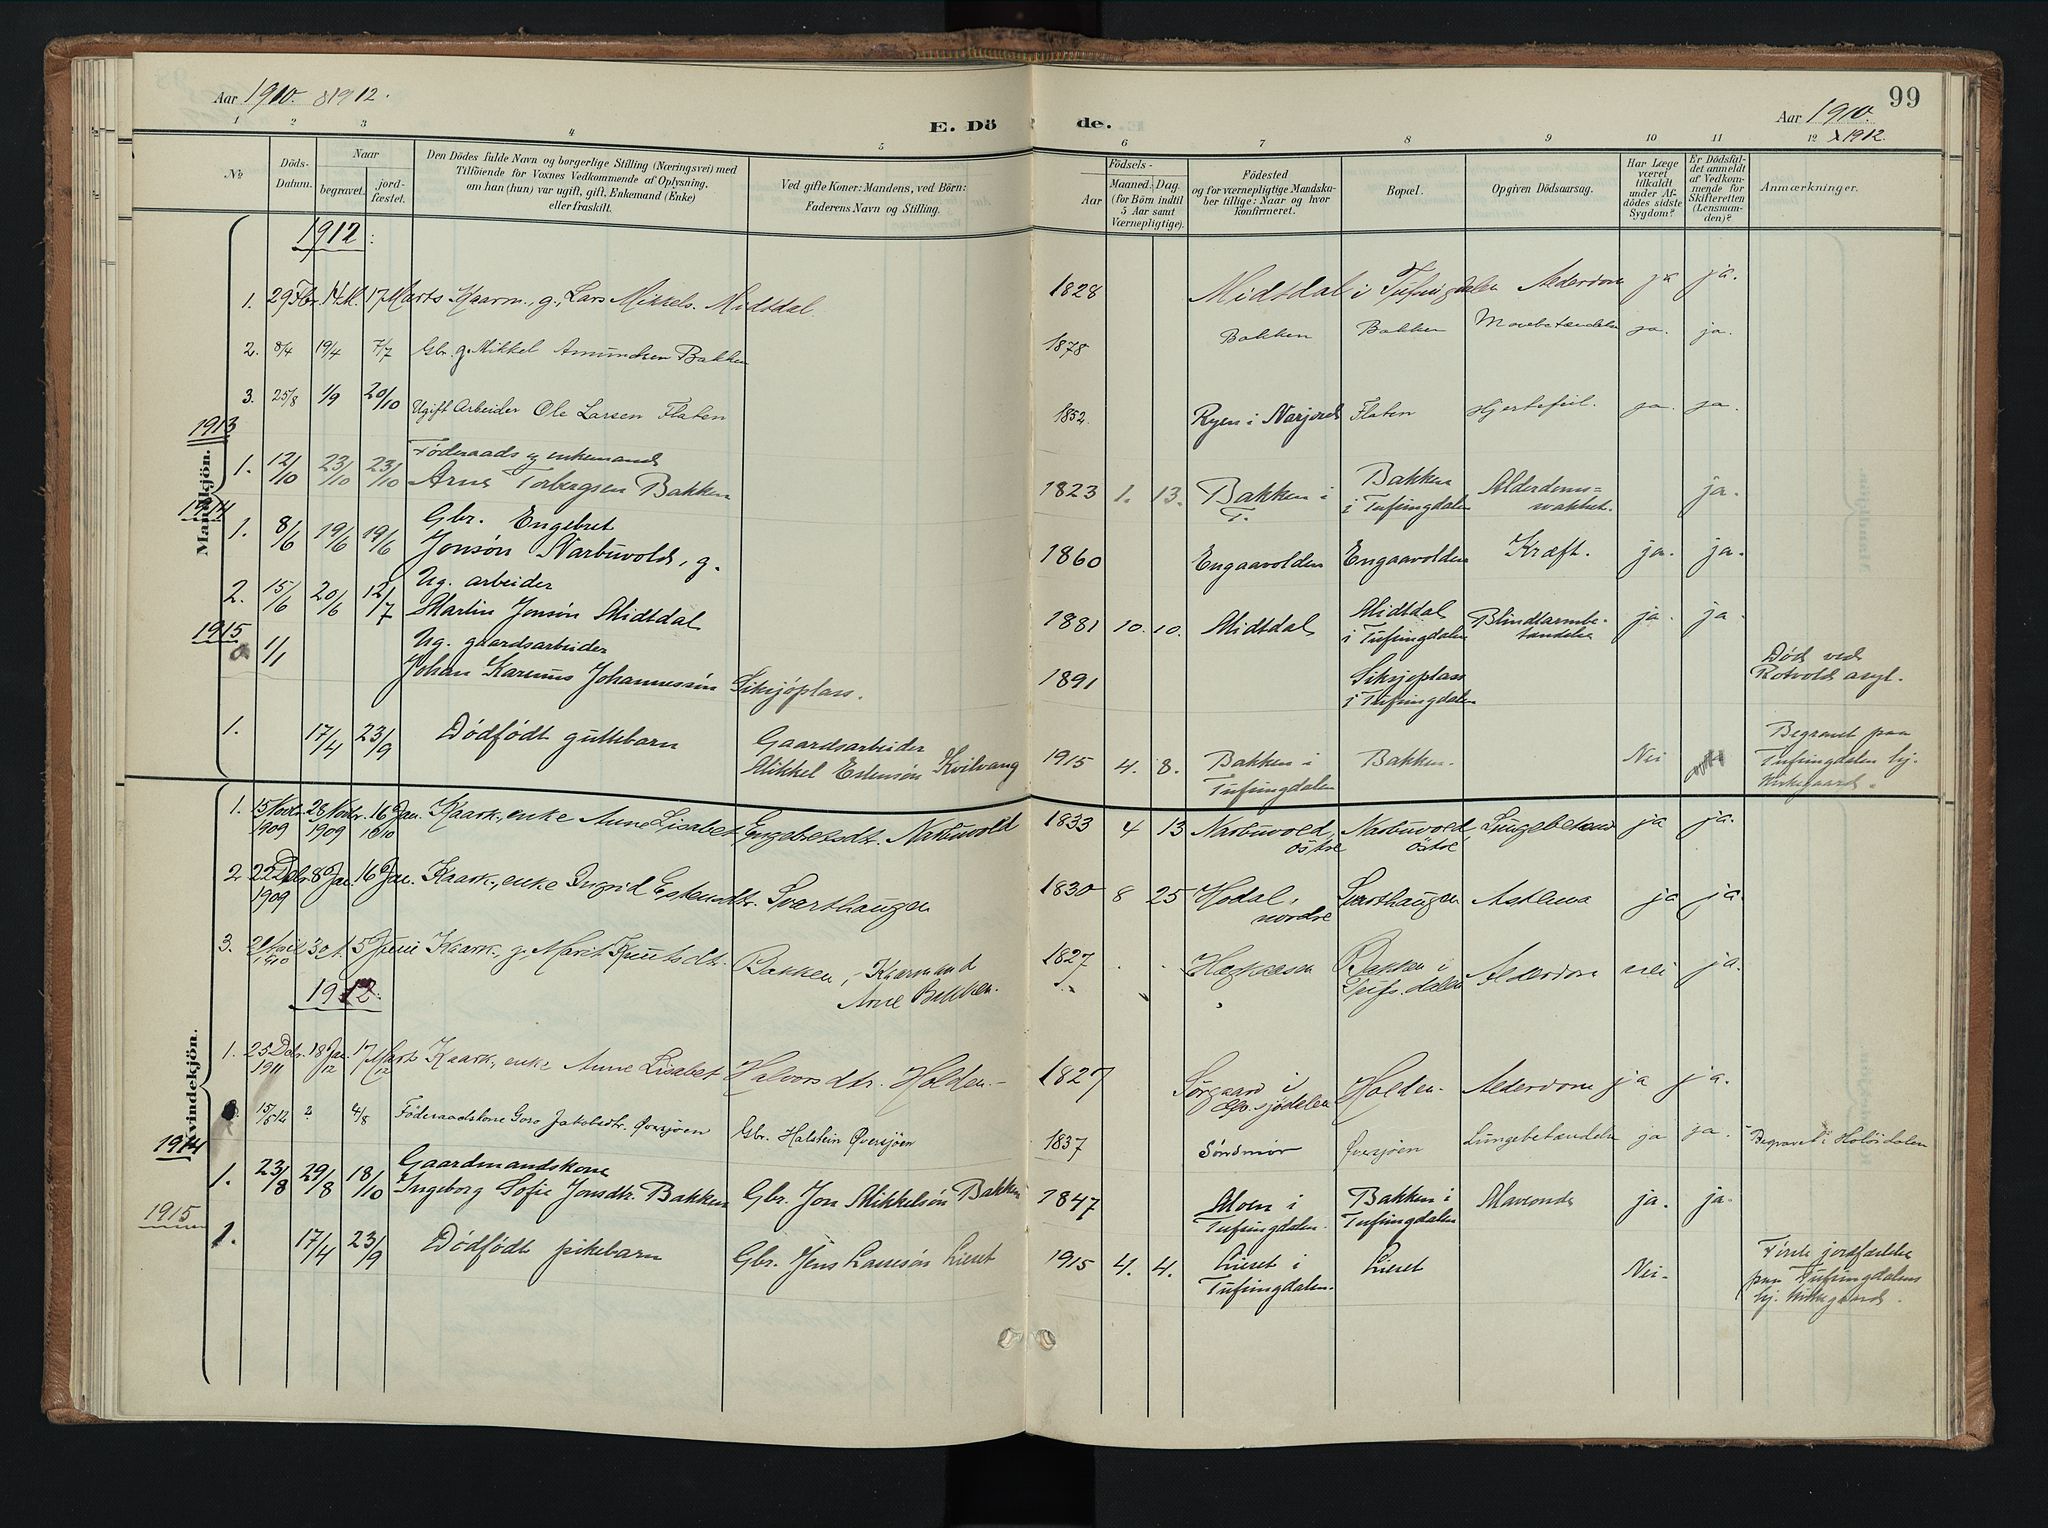 Aar 1910. & 1912.
E. Döde.
Aar 1910. & 1912.
99
1 2 3 4 5 6 7 8 9 10 11 12
No
Döds-Datum.
Naar
begravet.
jord-fæstet.
Den Dödes fulde Navn og borgerlige Stilling (Næringsvei) med
Tilföiende for Voxnes Vedkommende af Oplysning,
om han (hun) var ugift, gift, Enkemand (Enke)
eller fraskilt.
Ved gifte Koner: Mandens, ved Börn:
Faderens Navn og Stilling.
Födsels-
Aar
Maaned. Dag.
(for Börn indtil
5 Aar samt
Værnepligtige).
Födested
og for værnepligtige Mandska-
ber tillige: Naar og hvor
konfirmeret.
Bopæl.
Opgiven Dödsaarsag.
Har Læge
været
tilkaldt
under Af-
dödes sidste
Sygdom?
Er Dödsfal-
det anmeldt
af Vedkom-
mende for
Skifteretten
(Lensman-
den)?
Anmærkninger.
Mandkjön.
1912:
1. 29 Febr. 14 M. 17 Marts Kaarm., g., Lars Mikkels. Midtdal 1828 Midtdal i Tufsingdalen Alderdom ja ja.
2. 8/4 19/4 7/7 Gbr. g. Mikkel Amundsen Bakken 1878 Bakken Bakken Mavebetændelse ja. ja.
3. 25/8 1/9 20/10 Ugift Arbeider Ole Larsen Flaten 1852 Ryen i Narjord Flaten Hjertefeil. ja. ja.
1913
Føderaads og enkemand
1. 12/10 23/10 23/10 Arne Torbergsen Bakken 1823 1. 13. Bakken i T. Bakken i Tufsingdalen Alderdoms= ja.
1914
Gbr. Engebret
1. 8/6 19/6 19/6 Jonsøn Narbuvold, g. 1860 Engaavolden Engaavolden Kræft. ja. ja.
Ug. arbeider
2. 15/6 20/6 12/7 Martin Jonsøn Midtdal 1881 10. 10. Midtdal Midtdal i Tufsingdalen Blindtarmbe-tændelse ja. ja.
1915
Ug. gaardsarbeider
1/1 Johan Karenus Johannessøn Sikrjöplass. 1891 Sikrjöplass i Tufsingdalen Død ved Rotvold asyl.
1. 17/4 23/9 Dödfödt guttebarn Gaardsarbeider
Mikkel Estensøn Kvilvang 1915 4. 8. Bakken i Tufsingdalen Bakken. Nei Begravet paa Tufsingdalen bj. kirkegaard.
Kvindekjön.
1. 15 Novbr. 1909 28 Novbr. 1909 16 Jan. 1910 Kaark., enke Anne Lisabet Engebretsdtr. Narbuvold 1833 4 13 Narbuvold, östre Narbuvold, östre Lungebetænd ja ja.
2. 22 Dcbr. 1909 8 Jan. 16 Jan. Kaark., enke Ingrid Estensdtr. Sværthaugen 1830 8 25 Hodal, nordre Sværthaugen Astma ja ja.
3. 21 April 1910 30 A. 5 Juni Kaark., g., Marit Knutsdtr. Bakken, Kaarmand
Arne Bakken. 1827 Bakken i Tufs.dalen Alderdom nei ja.
1912:
1. 25 Dcbr. 1911 18 Jan. 12 17 Marts 12 Kaark., enke Anne Lisabet Halvorsdtr. Holden. 1827 Sørgaard i Holden. Alderdom ja ja.
15/6-12 ? 4/8 Føderaadskone Goro Jakobsdtr. Øversjøen Gbr. Halstein Øversjøen 1837 Søndmør Øversjøen Lungebetændelse ja ja. Begravet i Holöidalen
1914
Gaardmandskone
1. 23/8 29/8 18/10 Ingeborg Sofie Jonsdtr. Bakken Gbr. Jon Mikkelsøn Bakken 1847 Moen i Tufsingdalen. Bakken i Tufsingdalen Maveonde ja. ja.
1915
1. 17/4 23/9 Dödfödt pikebarn Gbr. Jens Larssøn Lieset 1915 4. 4. Lieset i Tufsingdalen. Lieset Nei. Første jordfæstelse paa Tufsingdalens bj. kirkegaard.